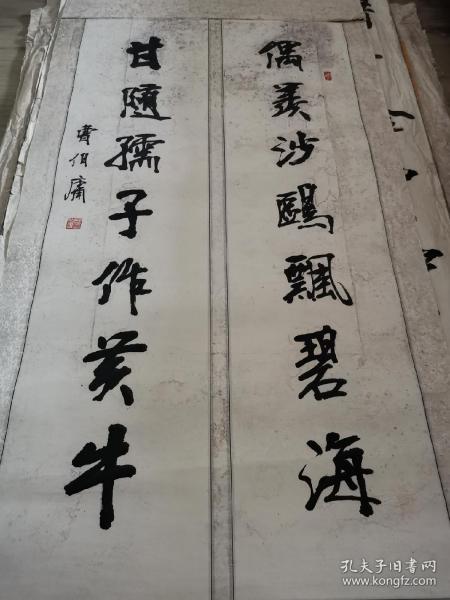 偶羡沙鷗飄碧海
甘隨孺子作黄牛
曹伯庸
孔夫子旧书网
www.kongfz.com